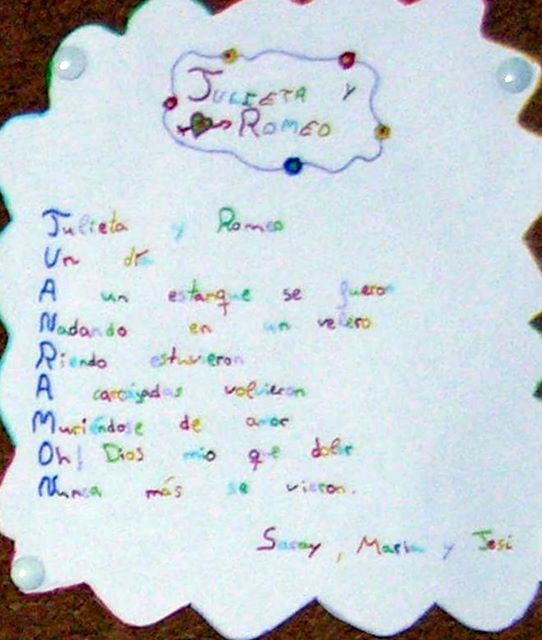 JULIETA Y
ROMEO
Julieta y Romeo
Un día
A un estanque se fueron
Nadando en un velero
Riendo estuvieron
A carcajadas volvieron
Muriéndose de amor
Oh! Dios mío que dolor
Nunca más se vieron.
Saray, María y Jesi